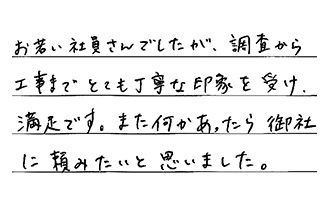 お若い社員さんでしたが、調査から
工事までとても丁寧な印象を受け、
満足です。また何かあったら御社
に頼みたいと思いました。